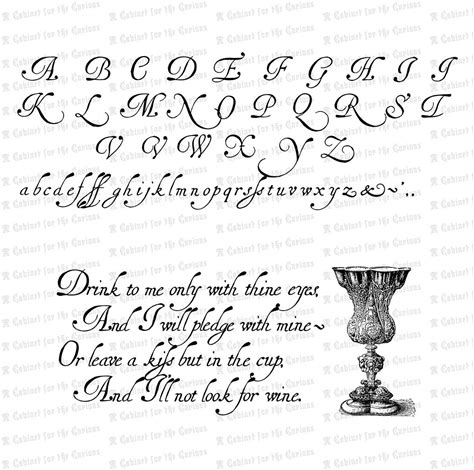 A B C D E F G H I I
K L M N O P Q R S T
V V W X Y Z
abcdefffghijklmnopqrsſstuvwxyz&~'..
Drink to me only with thine eyes,
And I will pledge with mine~
Or leave a kiſs but in the cup,
And I'll not look for wine.
Cabinet for the Curious